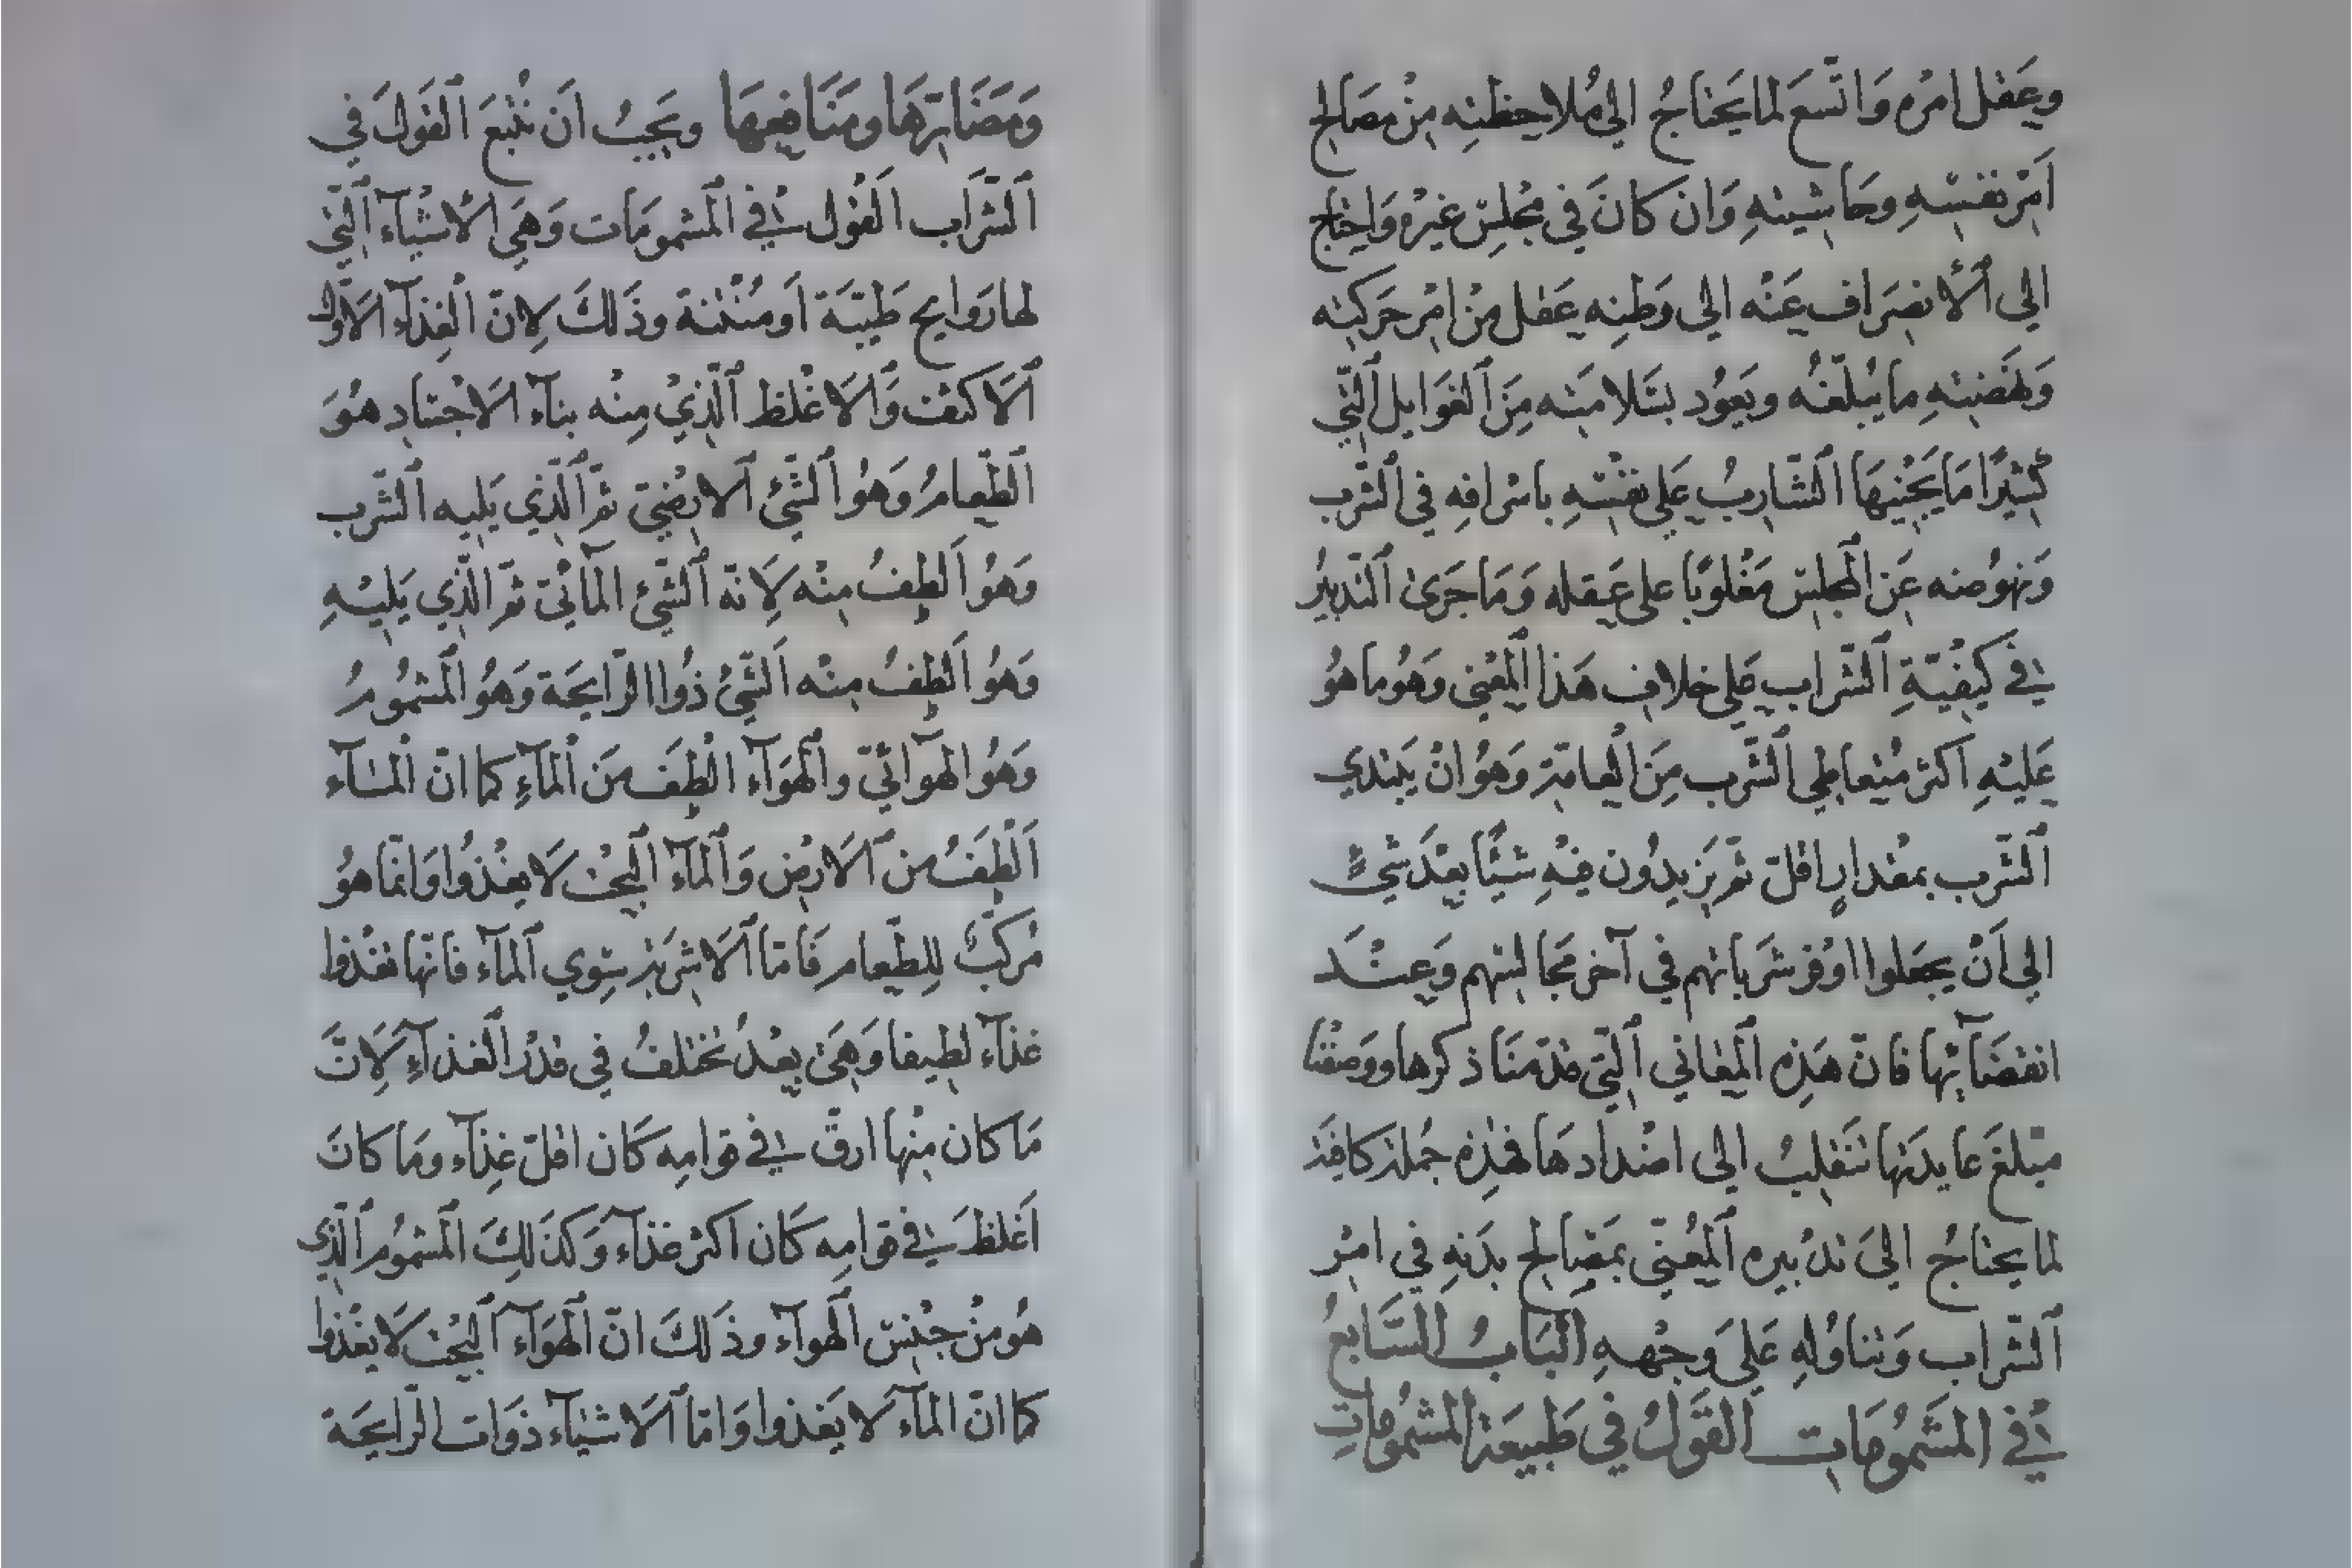 وعقل امره واتسع لما يحتاج الي ملاحظته من مصالح
امر نفسه وحاشيته وان كان في مجلس غيره واحتاج
الي الانصراف عنه الي وطنه عقل من امر حركته
ونهضته ما يبلغه ويعود بسلامته من الغوايل التي
كثيرا ما يجنيها الشارب علي نفسه باسرافه في الشرب
ونهوضه عن المجلس مغلوبا علي عقله وما جري التدبير
في كيفية الشراب علي خلاف هذا المعني وهو ما هو
عليه اكثر متعاطي الشرب من العامة وهو ان يبتدي
الشرب بمقدار اقل ثم يزيدون فيه شيئا بعد شئ
الي ان يجعلوا اوفر شرباتهم في آخر مجالسهم وعند
انقضآئها فان هذه المعاني التي قدمنا ذكرها ووصفنا
مبلغ عايدتها تنقلب الي اضدادها فهذه جملة كافية
لما يحتاج الي تدبيره المعني بمصالح بدنه في امر
الشراب وتناوله علي وجهه الباب السابع
في المشمومات القول في طبيعة المشمومات
ومضارها ومنافعها ويجب ان نتبع القول في
الشراب القول في المشمومات وهي الاشيآء التي
لها روايح طيبة او منتنة وذلك لان الغذآء الاول
الاكثف والاغلظ الذي منه بنآء الاجساد هو
الطعام وهو الشئ الارضي ثم الذي يليه الشرب
وهو الطف منه لانه الشئ المآئي ثم الذي يليه
وهو الطف منه الشئ ذوا الرايحة وهو المشموم
وهو الهوآئي والهوآء الطف من المآء كما ان المآء
الطف من الارض والمآء البحت لا يغذوا وانما هو
مركب للطعام فاما الاشربة سوي المآء فانها تغذوا
غذآء لطيفا وهي بعد تختلف في قدر الغذآء لان
ما كان منها ارق في قوامه كان اقل غذآء وما كان
اغلظ في قوامه كان اكثر غذآء وكذلك المشموم الذي
هو من جنس الهوآء وذلك ان الهوآء البحت لا يغذوا
كما ان المآء لا يغذوا واما الاشيآء ذوات الرايحة